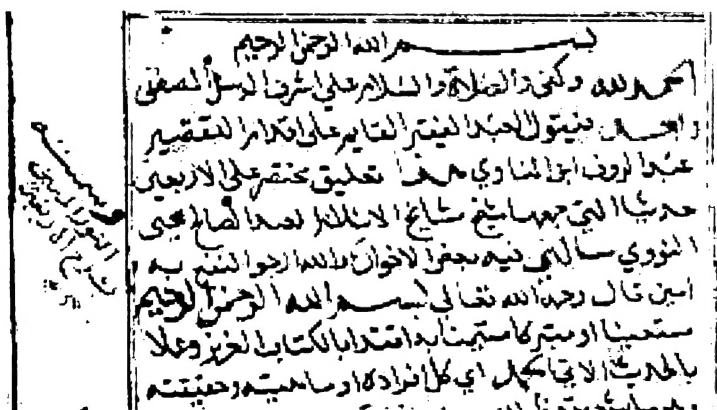 بسم الله الرحمن الرحيم
الحمد لله وكفى والصلاة والسلام على اشرف الرسل المصطفى
وبعد فيقول العبد الفقير القايم على اقدام التقصير
عبد الروف ابن المناوي هذا تعليق مختصر على الاربعين
حديثا التي جمعها شيخ مشايخ الاسلام العبد الصالح يحيى
النووي سالني فيه بعض الاخوان والله ارجو النفع به
امين قال رحمه الله تعالى بسم الله الرحمن الرحيم
مستعينا او متبركا مستيمنا به اقتدا بالكتاب العزيز وعملا
بالحديث الاتي اي كل افراده او ماهيته وحقيقته
وسمته
النور المبين
شرح الاربعين